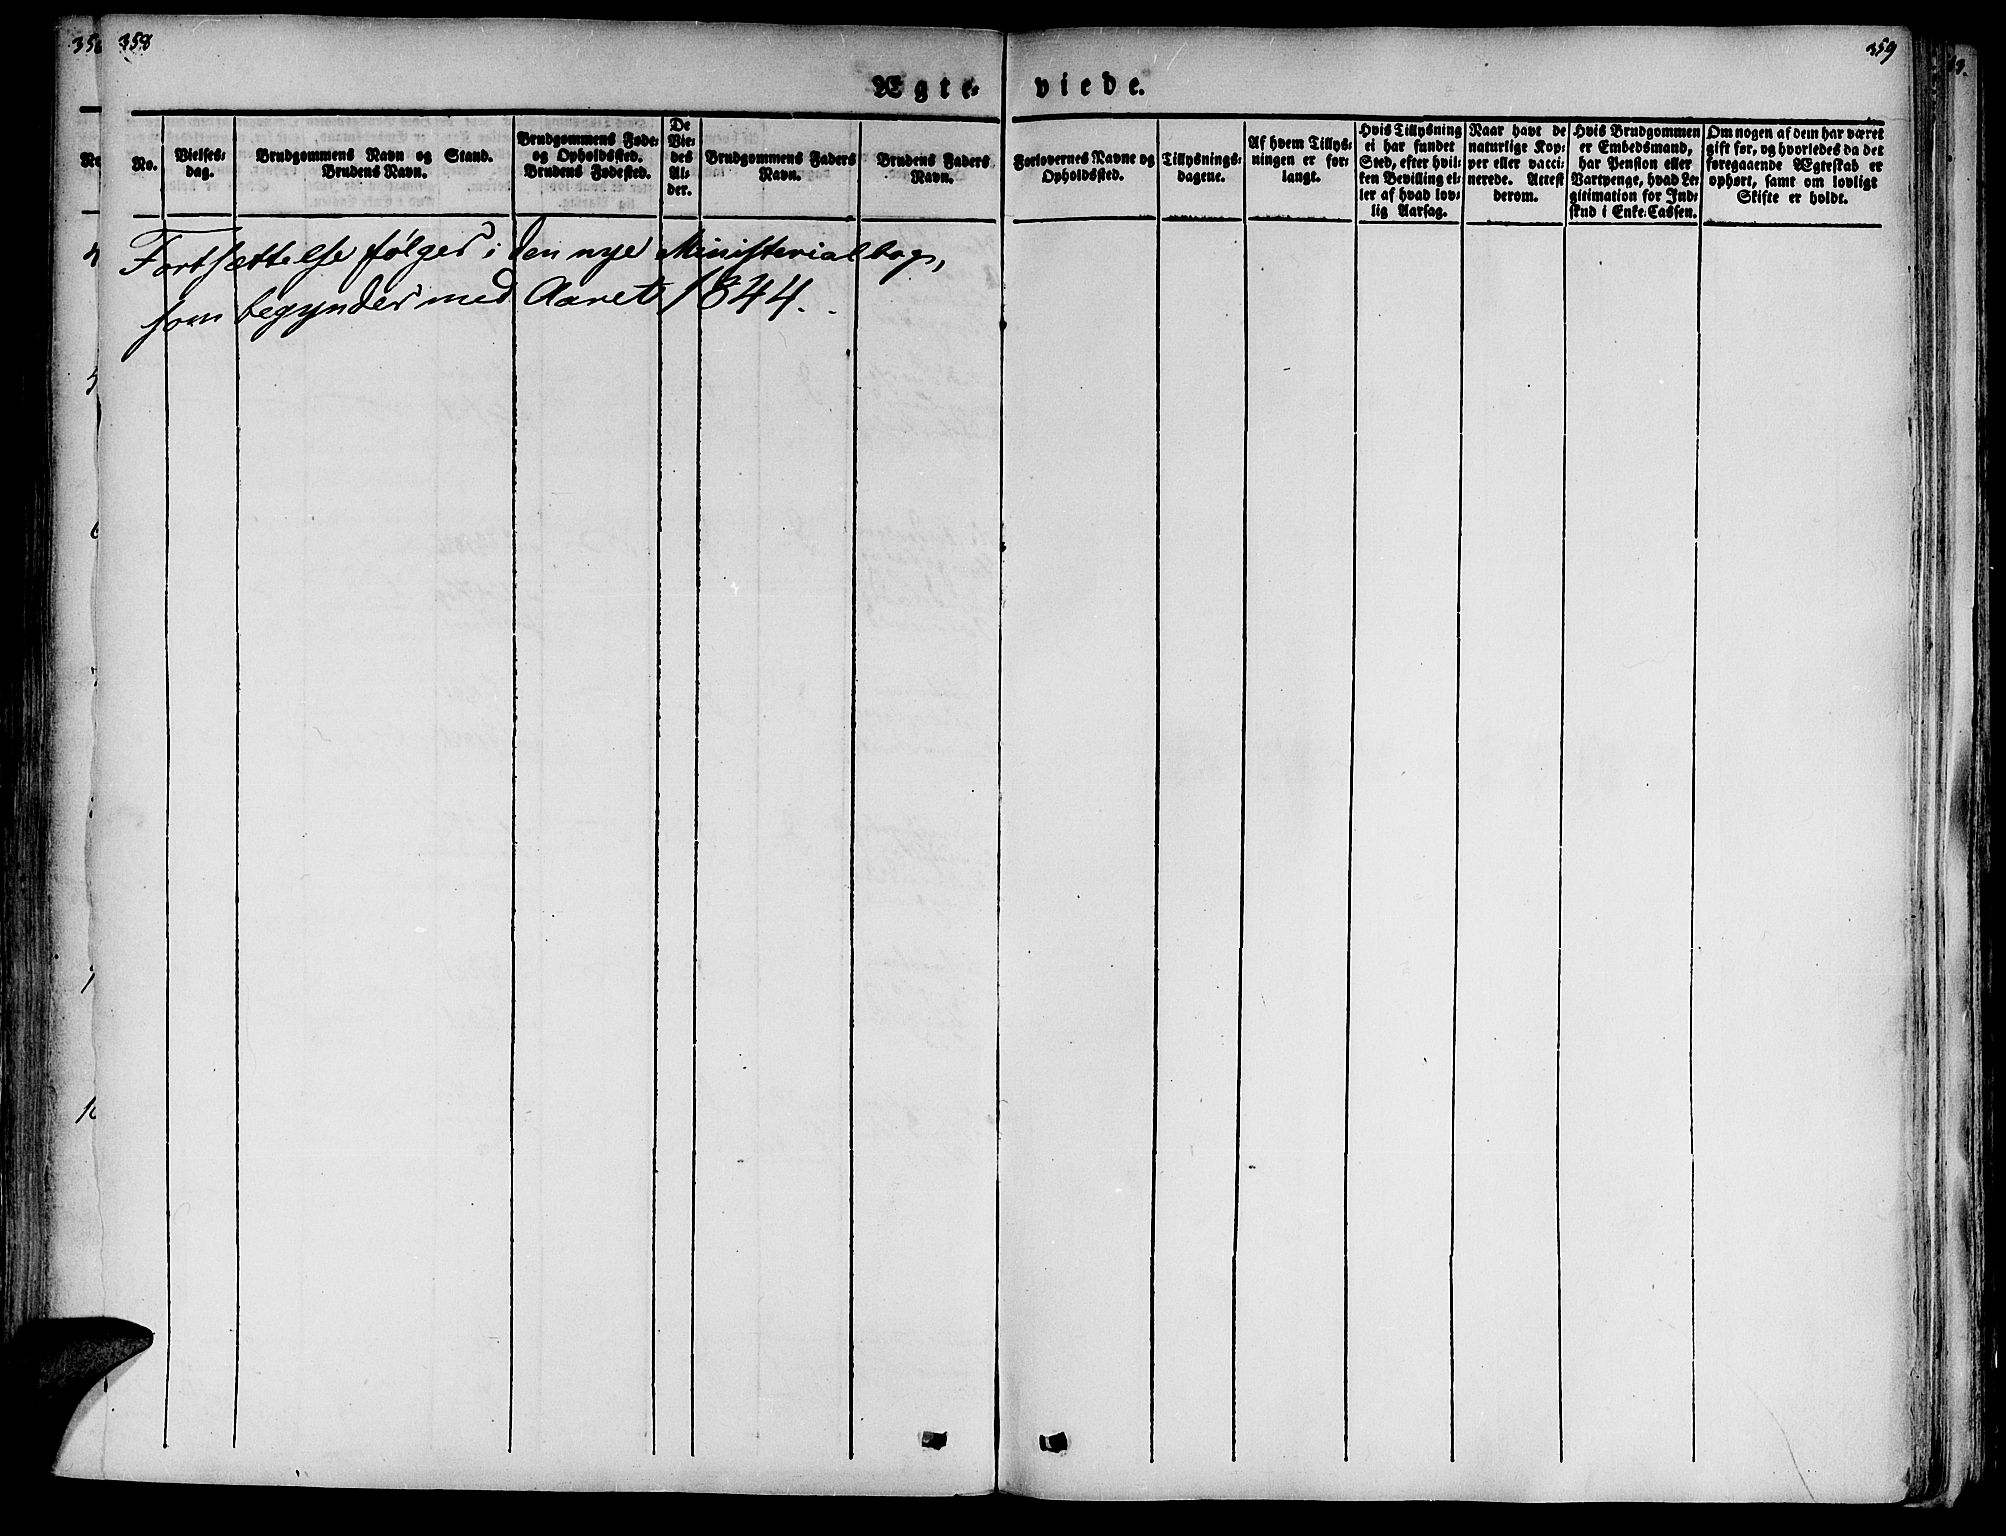 358
359
Ægte-
viede.
No.
Vielses-
dag.
Brudgommens Navn og Stand.
Brudens Navn.
Brudgommens Føde-
og Opholdssted.
Brudens Fødested.
De
Vie-
des
Al-
der.
Brudgommens Faders
Navn.
Brudens Faders
Navn.
Forlovernes Navne og
Opholdssted.
Tillysnings-
dagene.
Af hvem Tillys-
ningen er for-
langt.
Hvis Tillysning
ei har fundet
Sted, efter hvil-
ken Bevilling el-
ler af hvad lov-
lig Aarsag.
Naar havt de
naturlige Kop-
per eller vacci-
nerede. Attest
derom.
Hvis Brudgommen
er Embedsmand,
har Pension eller
Vartpenge, hvad Le-
gitimation for Ind-
skud i Enke-Cassen.
Om nogen af dem har været
gift før, og hvorledes da det
foregaaende Ægteskab er
ophørt, samt om lovligt
Skifte er holdt.
Fortsættelse følger i den nye Ministerialbog,
som begynder med Aaret 1844.